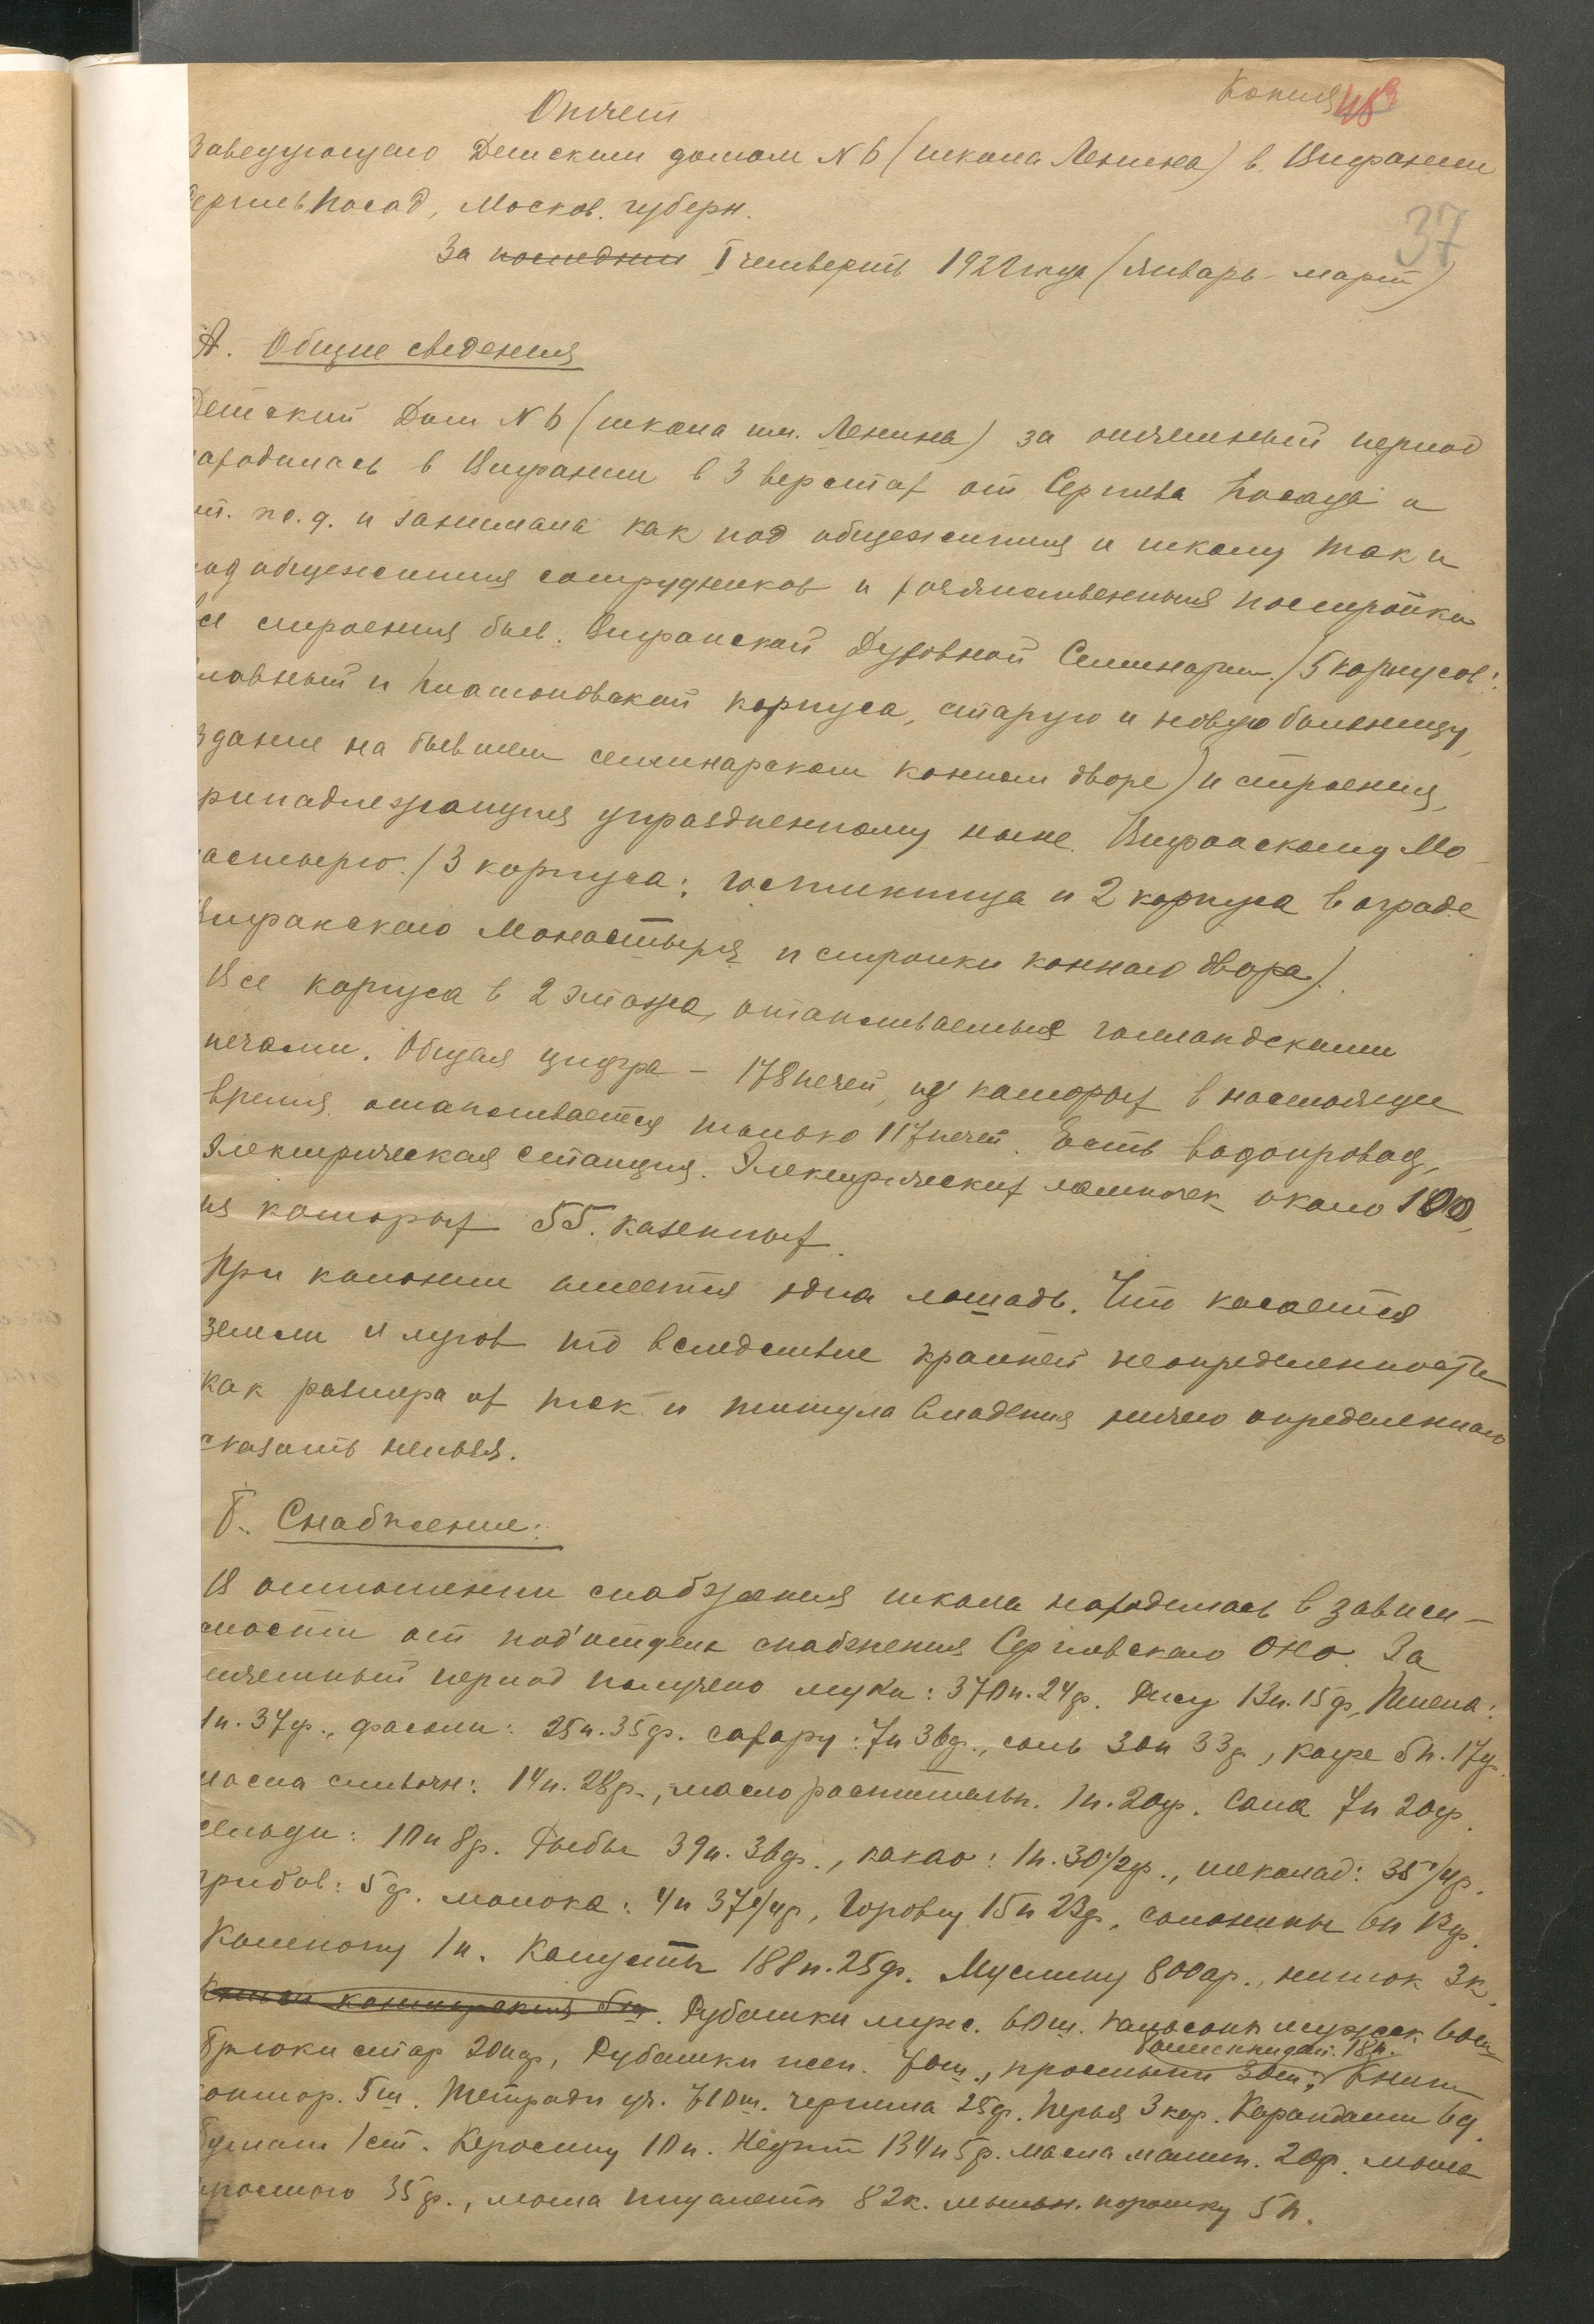 Копия 48
37
Отчет
Заведующаго Детским домом N 6 (школа Ленина) в Вифании
Сергиев Посад, Москов. губерн.
За последний I четверть 1922 года (Январь - март)
А. Общие сведения
Детский Дом N 6 (школа им. Ленина) за отчетный период
находилась в Вифании в 3 верстах от Сергиева Посада и
ст. ж.д. и занимала как под общежития и школу так и
под общежития сотрудников и хозяйственныя постройки
все строения быв. Вифанской Духовной Семинарии (5 корпусов:
главный и Платоновский корпуса, старую и новую больницу,
здание на бывшем семинарском конном дворе) и строения,
принадлежащия упраздненному ныне Вифанскому Мо-
настырю (3 корпуса: гостинница и 2 корпуса в ограде
Вифанскаго Монастыря и стройки коннаго двора).
Все корпуса в 2 этажа, отапливаемыя голландскими
печами. Общая цифра - 178 печей, из которых в настоящее
время отапливается только 117 печей. Есть водопровод,
Электрическая станция. Электрических лампочек около 100,
из которых 55. казенных.
При колонии имеется одна лошадь. Что касается
земли и лугов то вследствие крайней неопределенности
как размера их так и титула владения ничего определеннаго
сказать нельзя.
Б. Снабжение:
В отношении снабжения школа находилась в зависи-
мости от под'отдела снабжения Сергиевскаго ОНО. За
отчетный период получено муки: 370п. 24ф. Рису 13п. 15ф, Пшена:
1п. 37ф., фасоли: 25п. 35ф. сахару: 7п 36ф., соль 30п 33ф, кофе 5п. 17ф.
масла сливочн: 14п. 28ф., масло растительн. 1п. 20ф. Сала 7п 20ф.
сельди: 10п 8ф. Рыбы 39п. 36ф., какао: 1п. 30 1/2ф., шеколад: 35 1/4ф.
грибов: 5ф. молока: 4п 37 1/4ф, Гороху 15п 23ф, солонины 6п 13ф.
Компоту 1п. Капусты 188п. 25ф. Муслину 800ар., ниток 3к.
Рубашки мужс. 60ш. кальсоны мужск 60ш
Брюки стар 20пар, Рубашки жен. 70ш, простыни 30ш, 18п. Книги
контор. 5ш. Тетради уч. 710ш. чернила 25ф. Перья 3 кор. Карандаши 6д.
бумаги 1 ст. Керосину 10п. Нефти 134п 5ф. масла машин. 20ф. мыла
простого 35ф., мыла туалетн 82к. мыльн. порошку 5п.